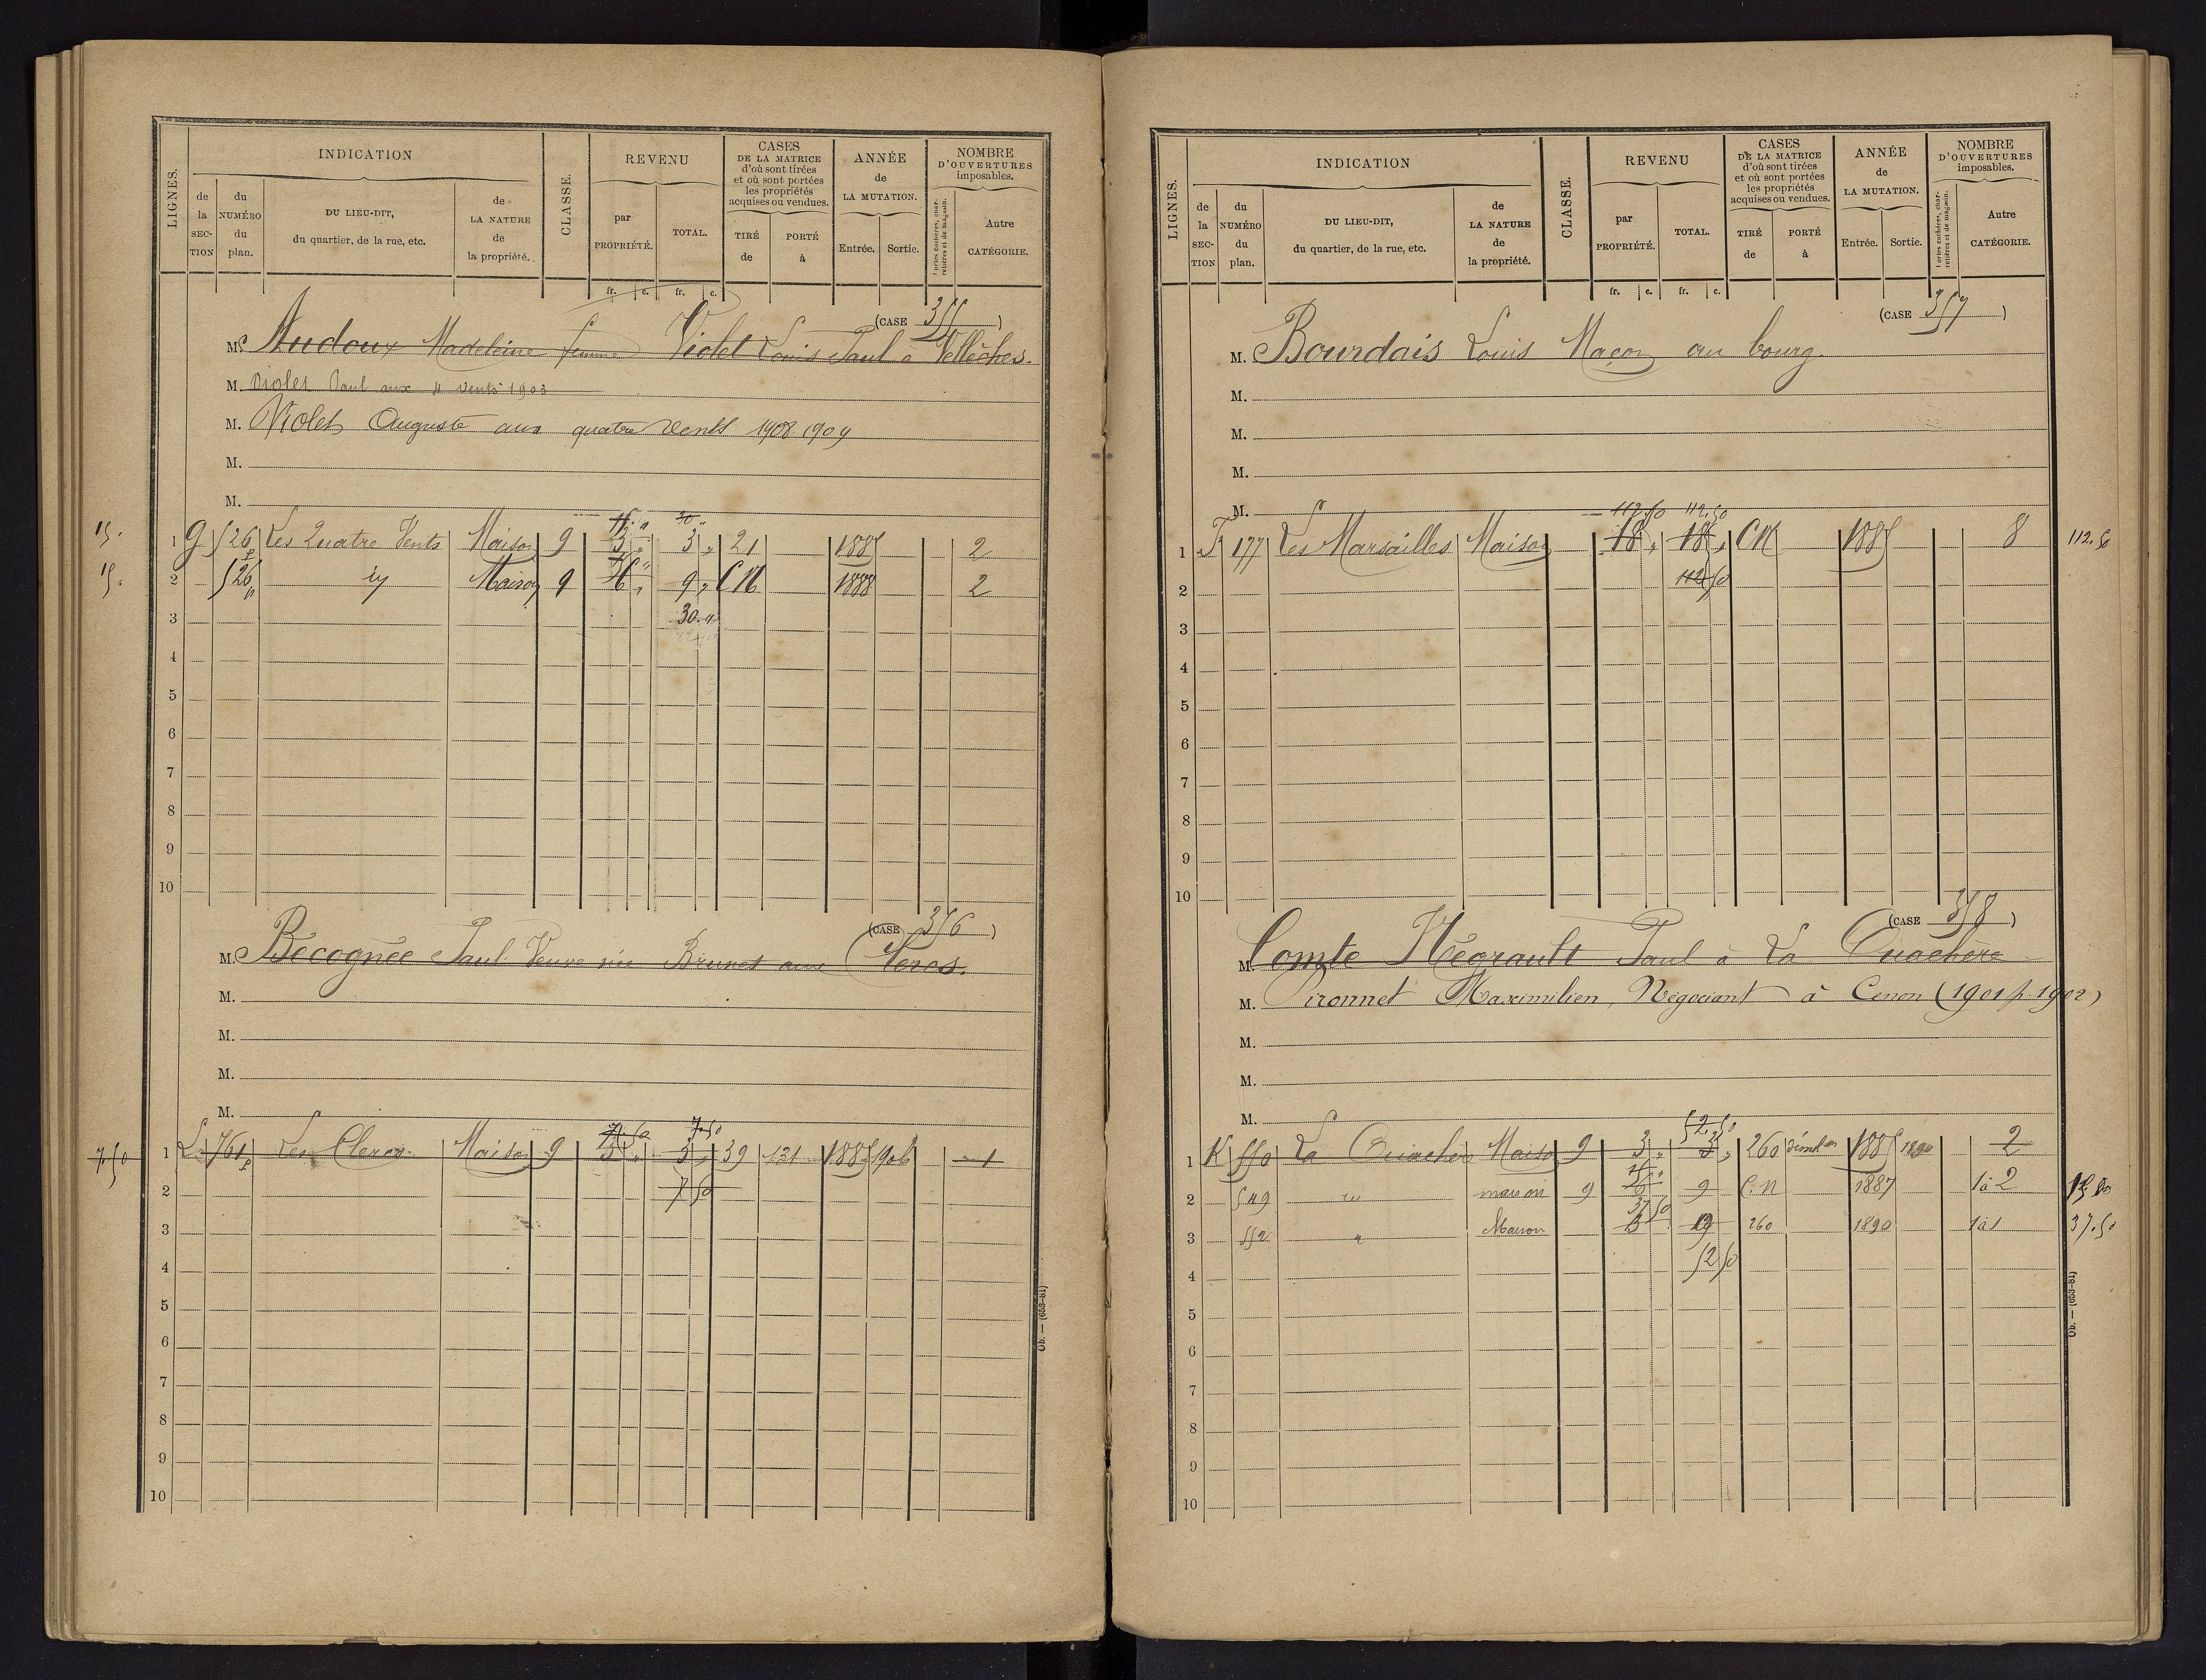 LIGNES. INDICATION CLASSE. REVENU CASES DE LA MATRICE d'où sont tirées et où sont portées les propriétés acquises ou vendues. ANNÉE de LA MUTATION. NOMBRE D'OUVERTURES imposables.
de la SECTION du NUMÉRO du plan. DU LIEU-DIT, du quartier, de la rue, etc. de LA NATURE de la propriété. par PROPRIÉTÉ. TOTAL. TIRÉ de PORTÉ à Entrée. Sortie. Portes cochères, charretières et de magasin. Autre CATÉGORIE.
fr. c. fr. c.
(CASE 355)
M. Audoux Madeleine femme Violet Louis Paul à Vellèches.
M. Violet Paul aux 4 vents 1903
M. Violet Auguste aux quatre vents 1908 1909
M.
M.
15. 30 "
15. 1 G 526p Les Quatre Vents Maison 9 3 " 3 " 21 1885 2
15. 2 526p id Maison 9 6 " 9 " CN 1888 2
3 30. "
4
5
6
7
8
9
10
(CASE 356)
M. Bécognée Paul Veuve née Brunet aux Clercs.
M.
M.
M.
M.
7.50 7.50
7.50 1 L 761p Les Clercs Maison 9 3 " 3 " 39 131 1885 1906 1
2 7 50
3
4
5
6
7
8
9
10
Ob. — (653-81)
LIGNES. INDICATION CLASSE. REVENU CASES DE LA MATRICE d'où sont tirées et où sont portées les propriétés acquises ou vendues. ANNÉE de LA MUTATION. NOMBRE D'OUVERTURES imposables.
de la SECTION du NUMÉRO du plan. DU LIEU-DIT, du quartier, de la rue, etc. de LA NATURE de la propriété. par PROPRIÉTÉ. TOTAL. TIRÉ de PORTÉ à Entrée. Sortie. Portes cochères, charretières et de magasin. Autre CATÉGORIE.
fr. c. fr. c.
(CASE 357)
M. Bourdais Louis Maçon au bourg.
M.
M.
M.
M.
112.50 112.50
1 F 177 Les Marsailles Maison 18 " 18 " CN 1885 8 112.50
2 112 50
3
4
5
6
7
8
9
10
(CASE 358)
M. Comte Hégrault Paul à La Guachère
M. Pironnet Maximilien, Négociant à Cenon (1901 p. 1902)
M.
M.
M.
52.50
1 K 550 La Guachère Maison 9 3 " 3 " 260 1885 1890 2
2 549 id maison 9 6 9 C.N 1887 1 à 2
37 50
3 552 " Maison 260 1890 1 à 1 37.50
4 52 50
5
6
7
8
9
10
Ob. — (653-81)